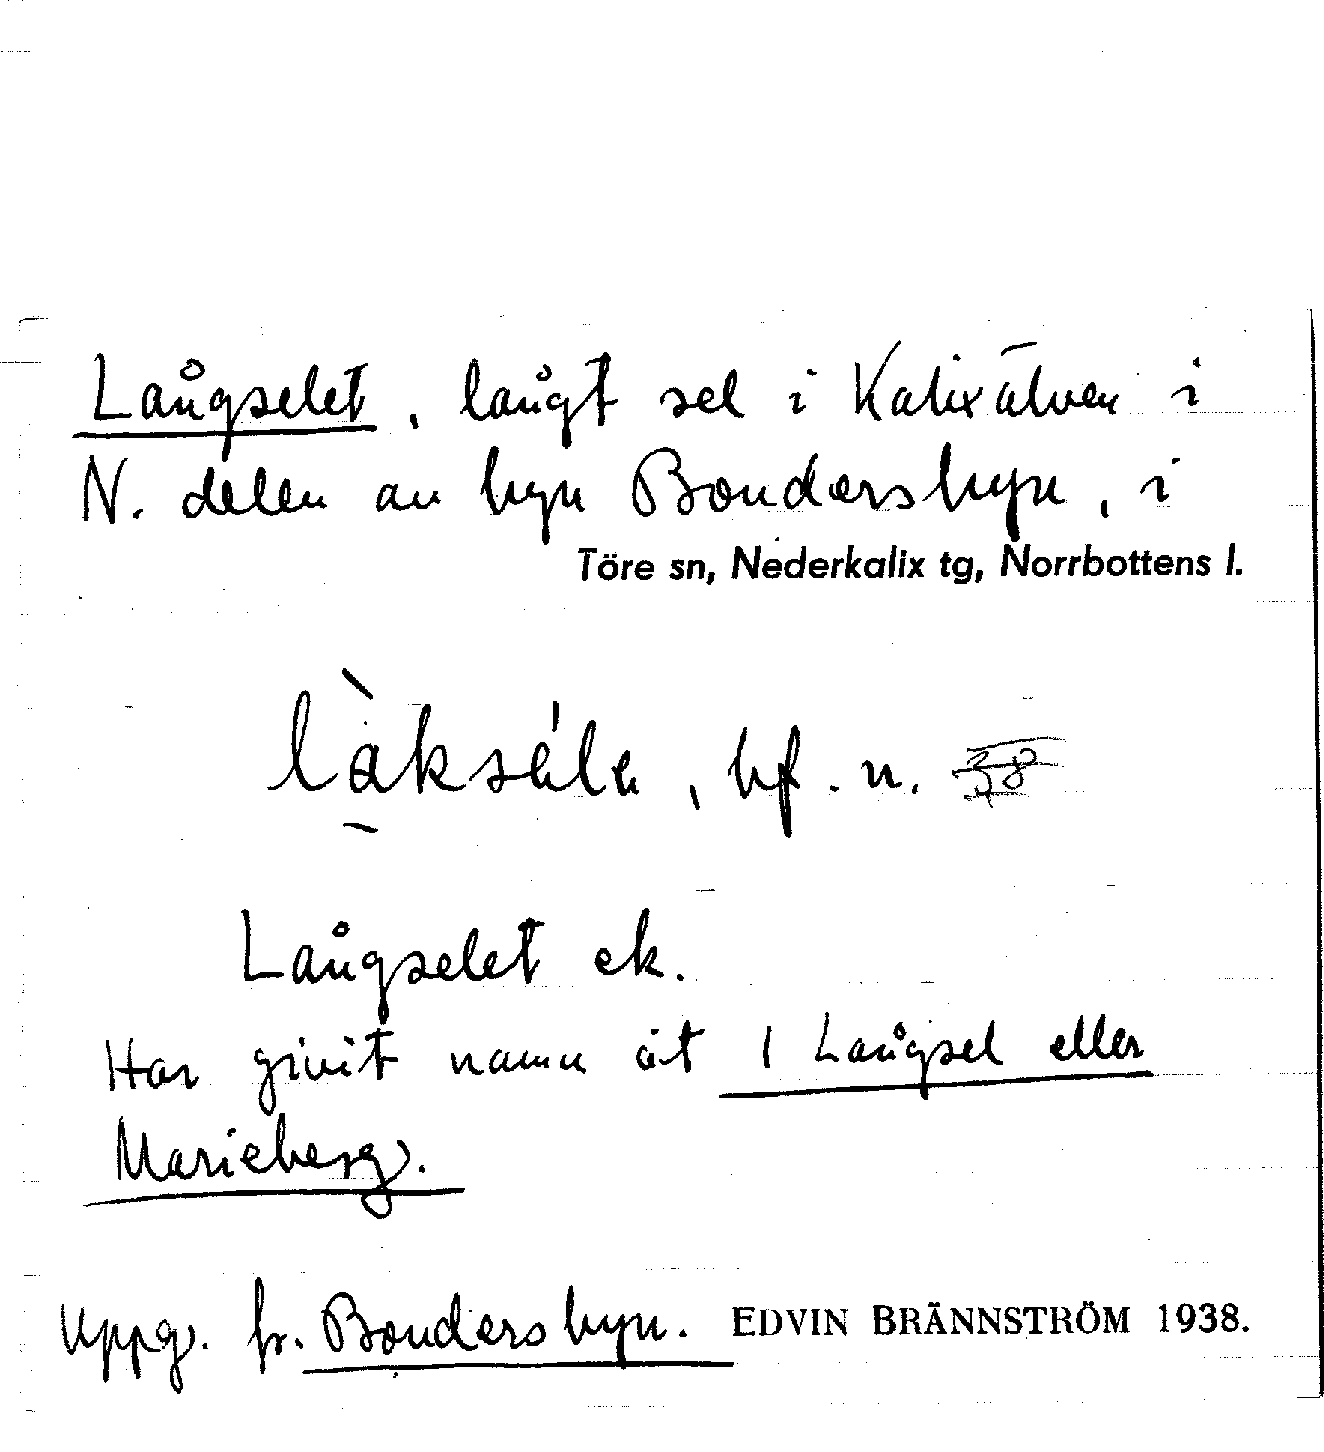 Långselet, långt sel i Kalixälven i
N. delen av byn Bondersbyn, i
Töre sn, Nederkalix tg, Norrbottens l.
bf. n.
Långselet ek.
Har givit namn åt 1 Långsel eller
Marieberg.
Uppg. fr. Bondersbyn. EDVIN BRÄNNSTRÖM 1938.